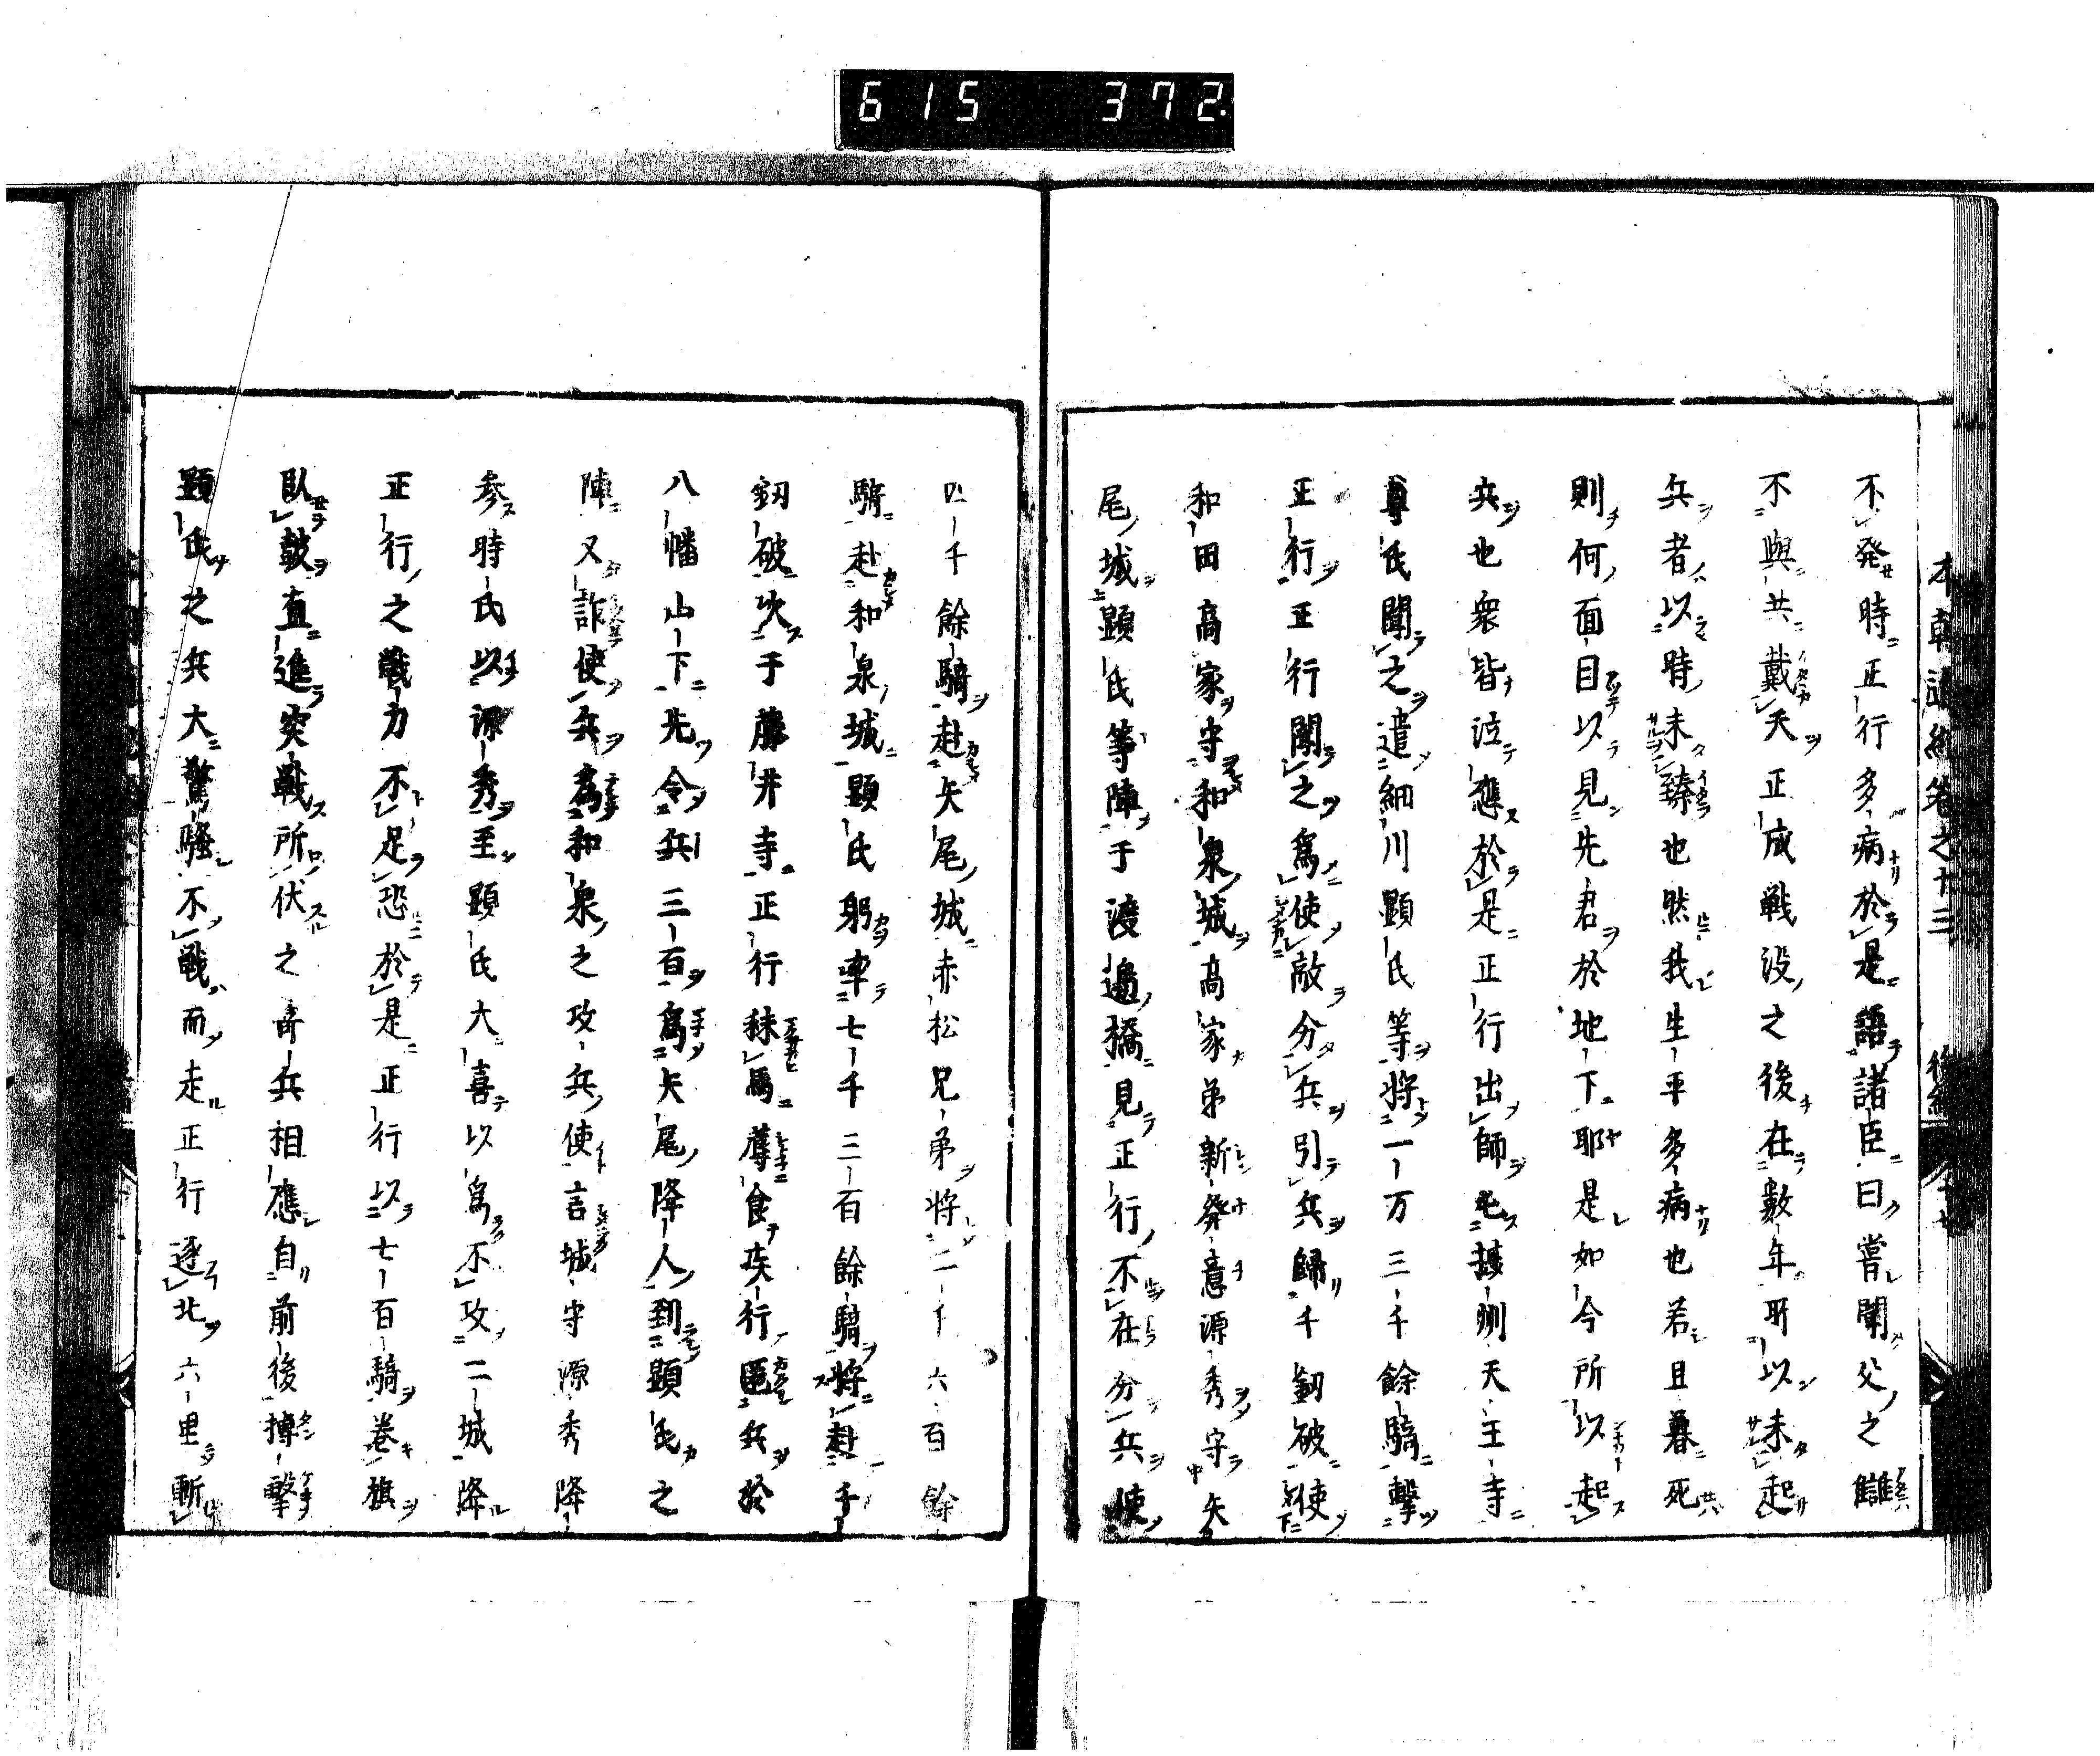 615 372
本朝通紀卷之十三 後編
不発時正行多病於是語諸臣曰嘗聞父之讎
不與共戴天正成戦没之後在數年所以未起
兵者以時未臻也然我生平多病也若且暮死
則何面目以見先君於地下耶是如今所以起
兵也衆皆泣應於是正行出師屯摂州天王寺
尊氏聞之遣細川顕氏等将一万三千餘騎擊
正行正行聞之為使敵分兵引兵歸千釼破使
和田高家守和泉城高家弟新発意源秀守矢
尾城顕氏等陣于渡邉橋見正行不在分兵使
四千餘騎赴矢尾城赤松兄弟将二千六百餘
騎赴和泉城顕氏躬率七千三百餘騎将赴千
釼破次于藤井寺正行秣馬蓐食疾行匿兵於
八幡山下先令兵三百為矢尾降人到顕氏之
陣又詐使兵為和泉之攻兵使言城守源秀降
参時氏以源秀至顕氏大喜以為不攻二城降
正行之戦力不足恐於是正行以七百騎巻旗
臥鼓直進突戦所伏之奇兵相應自前後搏擊
顕氏之兵大驚騒不戦而走正行逐北六里斬